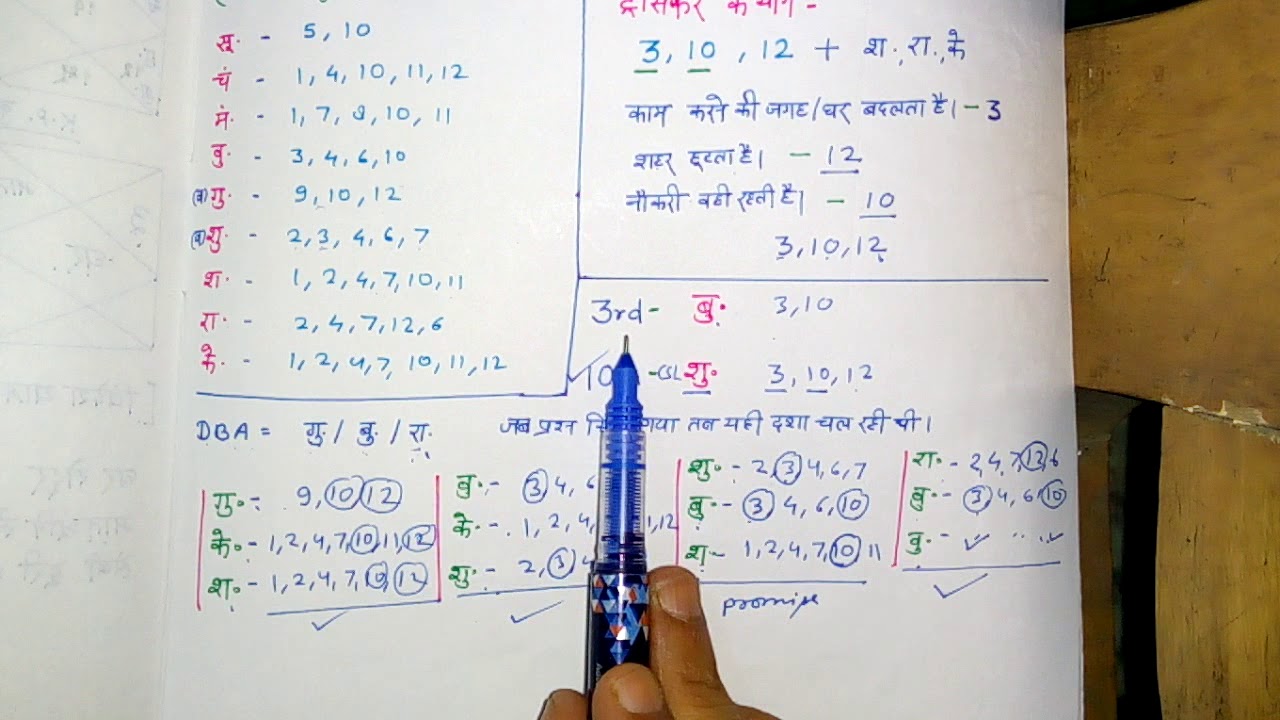 सू. - 5, 10
चं - 1, 4, 10, 11, 12
मं. - 1, 7, 9, 10, 11
बु. - 3, 4, 6, 10
(व) गु. - 9, 10, 12
(व) शु. - 2, 3, 4, 6, 7
श. - 1, 2, 4, 7, 10, 11
रा. - 2, 4, 7, 12, 6
के. - 1, 2, 4, 7, 10, 11, 12
ट्रांसफर के योग -
3, 10, 12 + श., रा., के
काम करने की जगह/घर बदलता है। - 3
शहर छूटता है। - 12
नौकरी वही रहती है। - 10
3, 10, 12
3rd - बु. 3, 10
10 - CSL शु. 3, 10, 12
DBA = गु. / बु. / रा. जब प्रश्न गया तब यही दशा चल रही थी।
गु. - 9, 10 12
के. - 1, 2, 4, 7, 10, 11, 12
श. - 1, 2, 4, 7, 10, 12
बु. - 3 4, 6
के. - 1, 2, 4, 1, 12
शु. - 2, 3 4
शु. - 2, 3 4, 6, 7
बु. - 3 4, 6, 10
श. - 1, 2, 4, 7, 10 11
promise
रा. - 2, 4, 7, 12, 6
बु. - 3, 4, 6, 10
बु. -